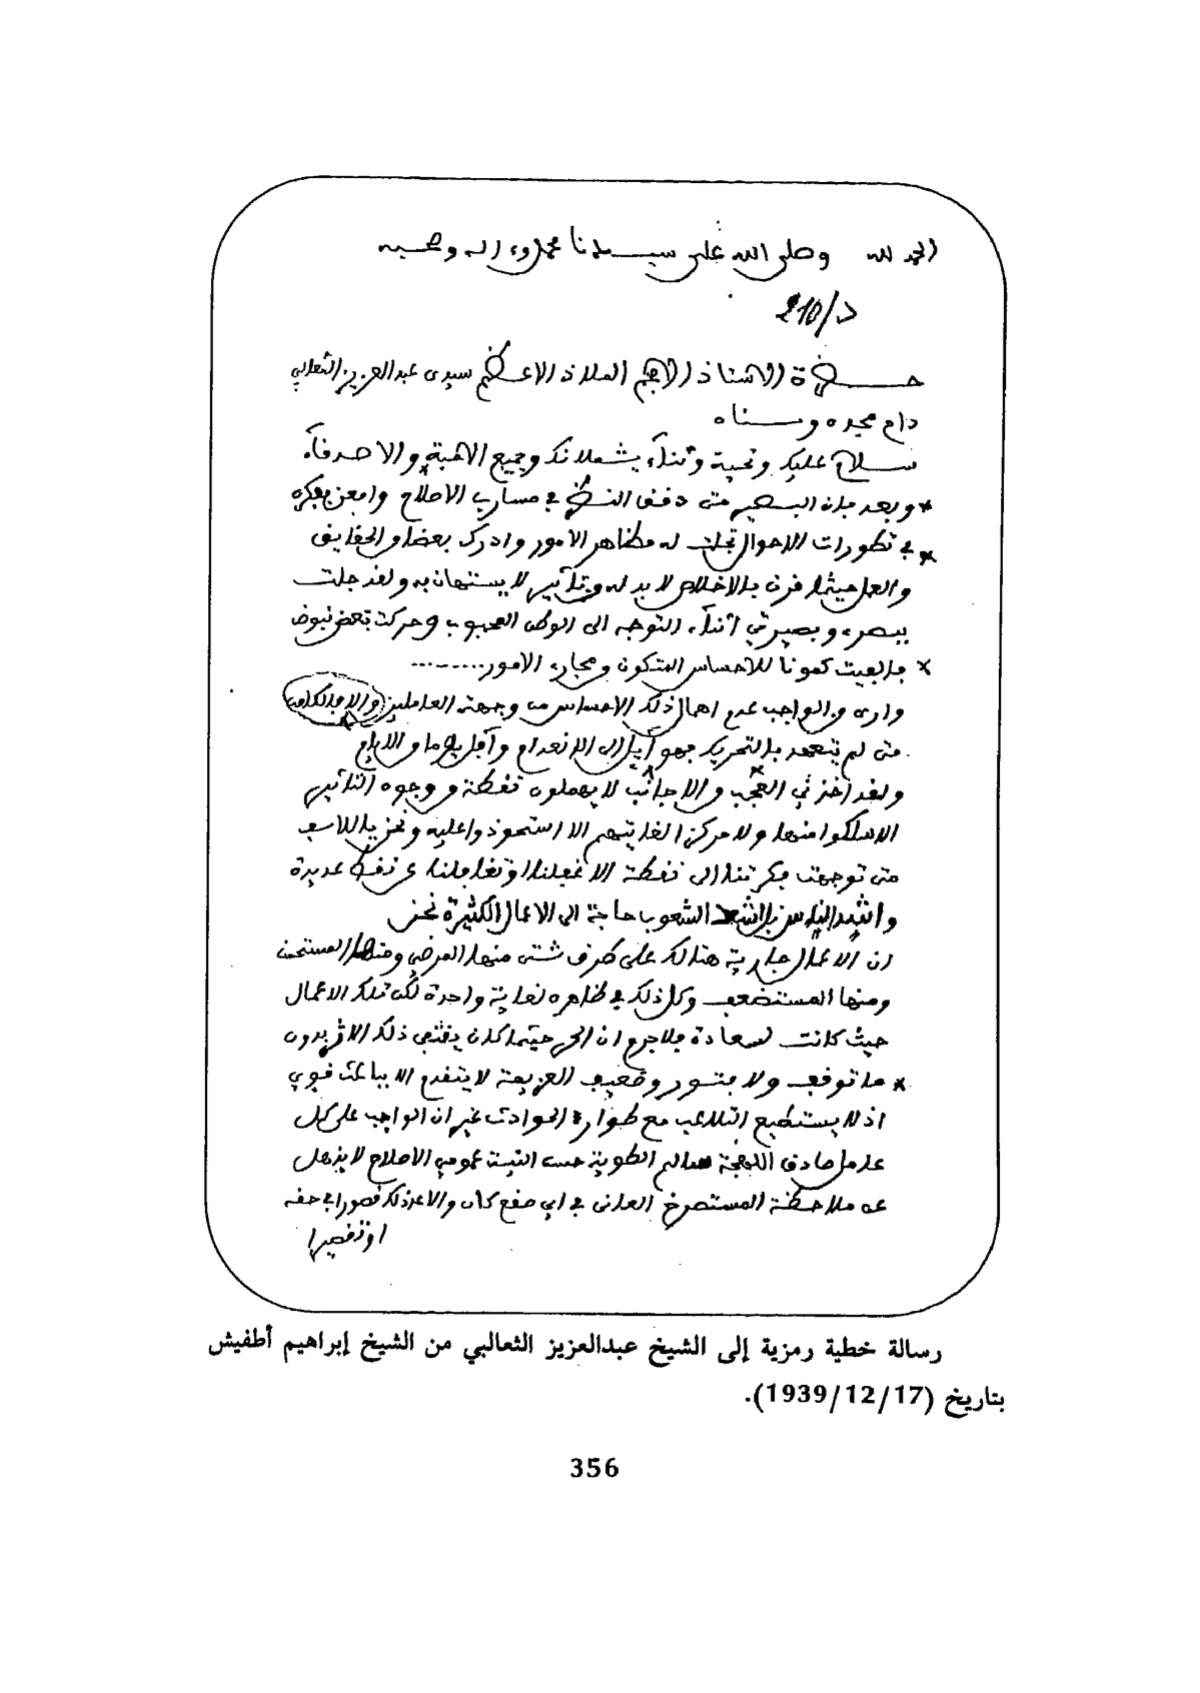 الحمد لله وصلى الله على سيدنا محمد وءاله وصحبه
د/210
حضرة الاستاذ الافخم الملاذ الاعظم سيدى عبدالعزيز الثعالبي
دام مجده وسناه
سلام عليك وتحية وثناء يشملانك وجميع الاحبة والاصدقاء
* وبعد فان البصير متى دقق النظر في مسارب الاصلاح وامعن بفكره
* في تطورات الاحوال تجلت له مظاهر الامور وادرك بعضا من الحقايق
والعمل حيثما قرن بالاخلاص لا بد له من تأثير لا يستهان به ولقد جلت
ببصرى وبصيرتي أثناء التوجه الى الوطن المحبوب وحركت بعض نبوض
* فالفيت كمونا للاحساس المتكون ومجارى الامور........
وارى من الواجب عدم اهمال ذلك الاحساس من وجهة العاملين
متى لم يتعهد بالتحريك فهو آيل الى الانعدام
ولقد اخذني العجب من الاجانب لا يهملون نقطة من وجوه التأثير
الا سلكوا منها ولا مركز الغايتهم الا استحوذوا عليه ونحن ياللاسف
متى توجهت فكرتنا الى نقطة الا غفلنا او تغافلنا عن نقط عديدة
الشعوب حاجة الى الاعمال الكثيرة نحن
ان الاعمال جارية هنالك على طرف شتى منها المرضي ومنها المستحسن
ومنها المستضعف وكل ذلك في ظاهره لغاية واحدة لكن تلك الاعمال
حيث كانت لسعادة فلا جرم ان الحر حيثما كان يقتضي ذلك الا يريدون
* ما توقف ولا فتور وضعيف العزيمة لا يتقدم الا بباعث قوي
اذ لا يستطيع التلاعب مع طوارئ الحوادث غير ان الواجب على كل
عامل صادق اللهجة سالم الطوية حسن النية عمومي الاصلاح لا يذهل
عن ملاحظة المستصرخ العانى في اي صقع كان والا عد ذلك قصورا في حقه
او تقصيرا
رسالة خطية رمزية إلى الشيخ عبدالعزيز الثعالبي من الشيخ إبراهيم أطفيش
بتاريخ (1939/12/17).
356